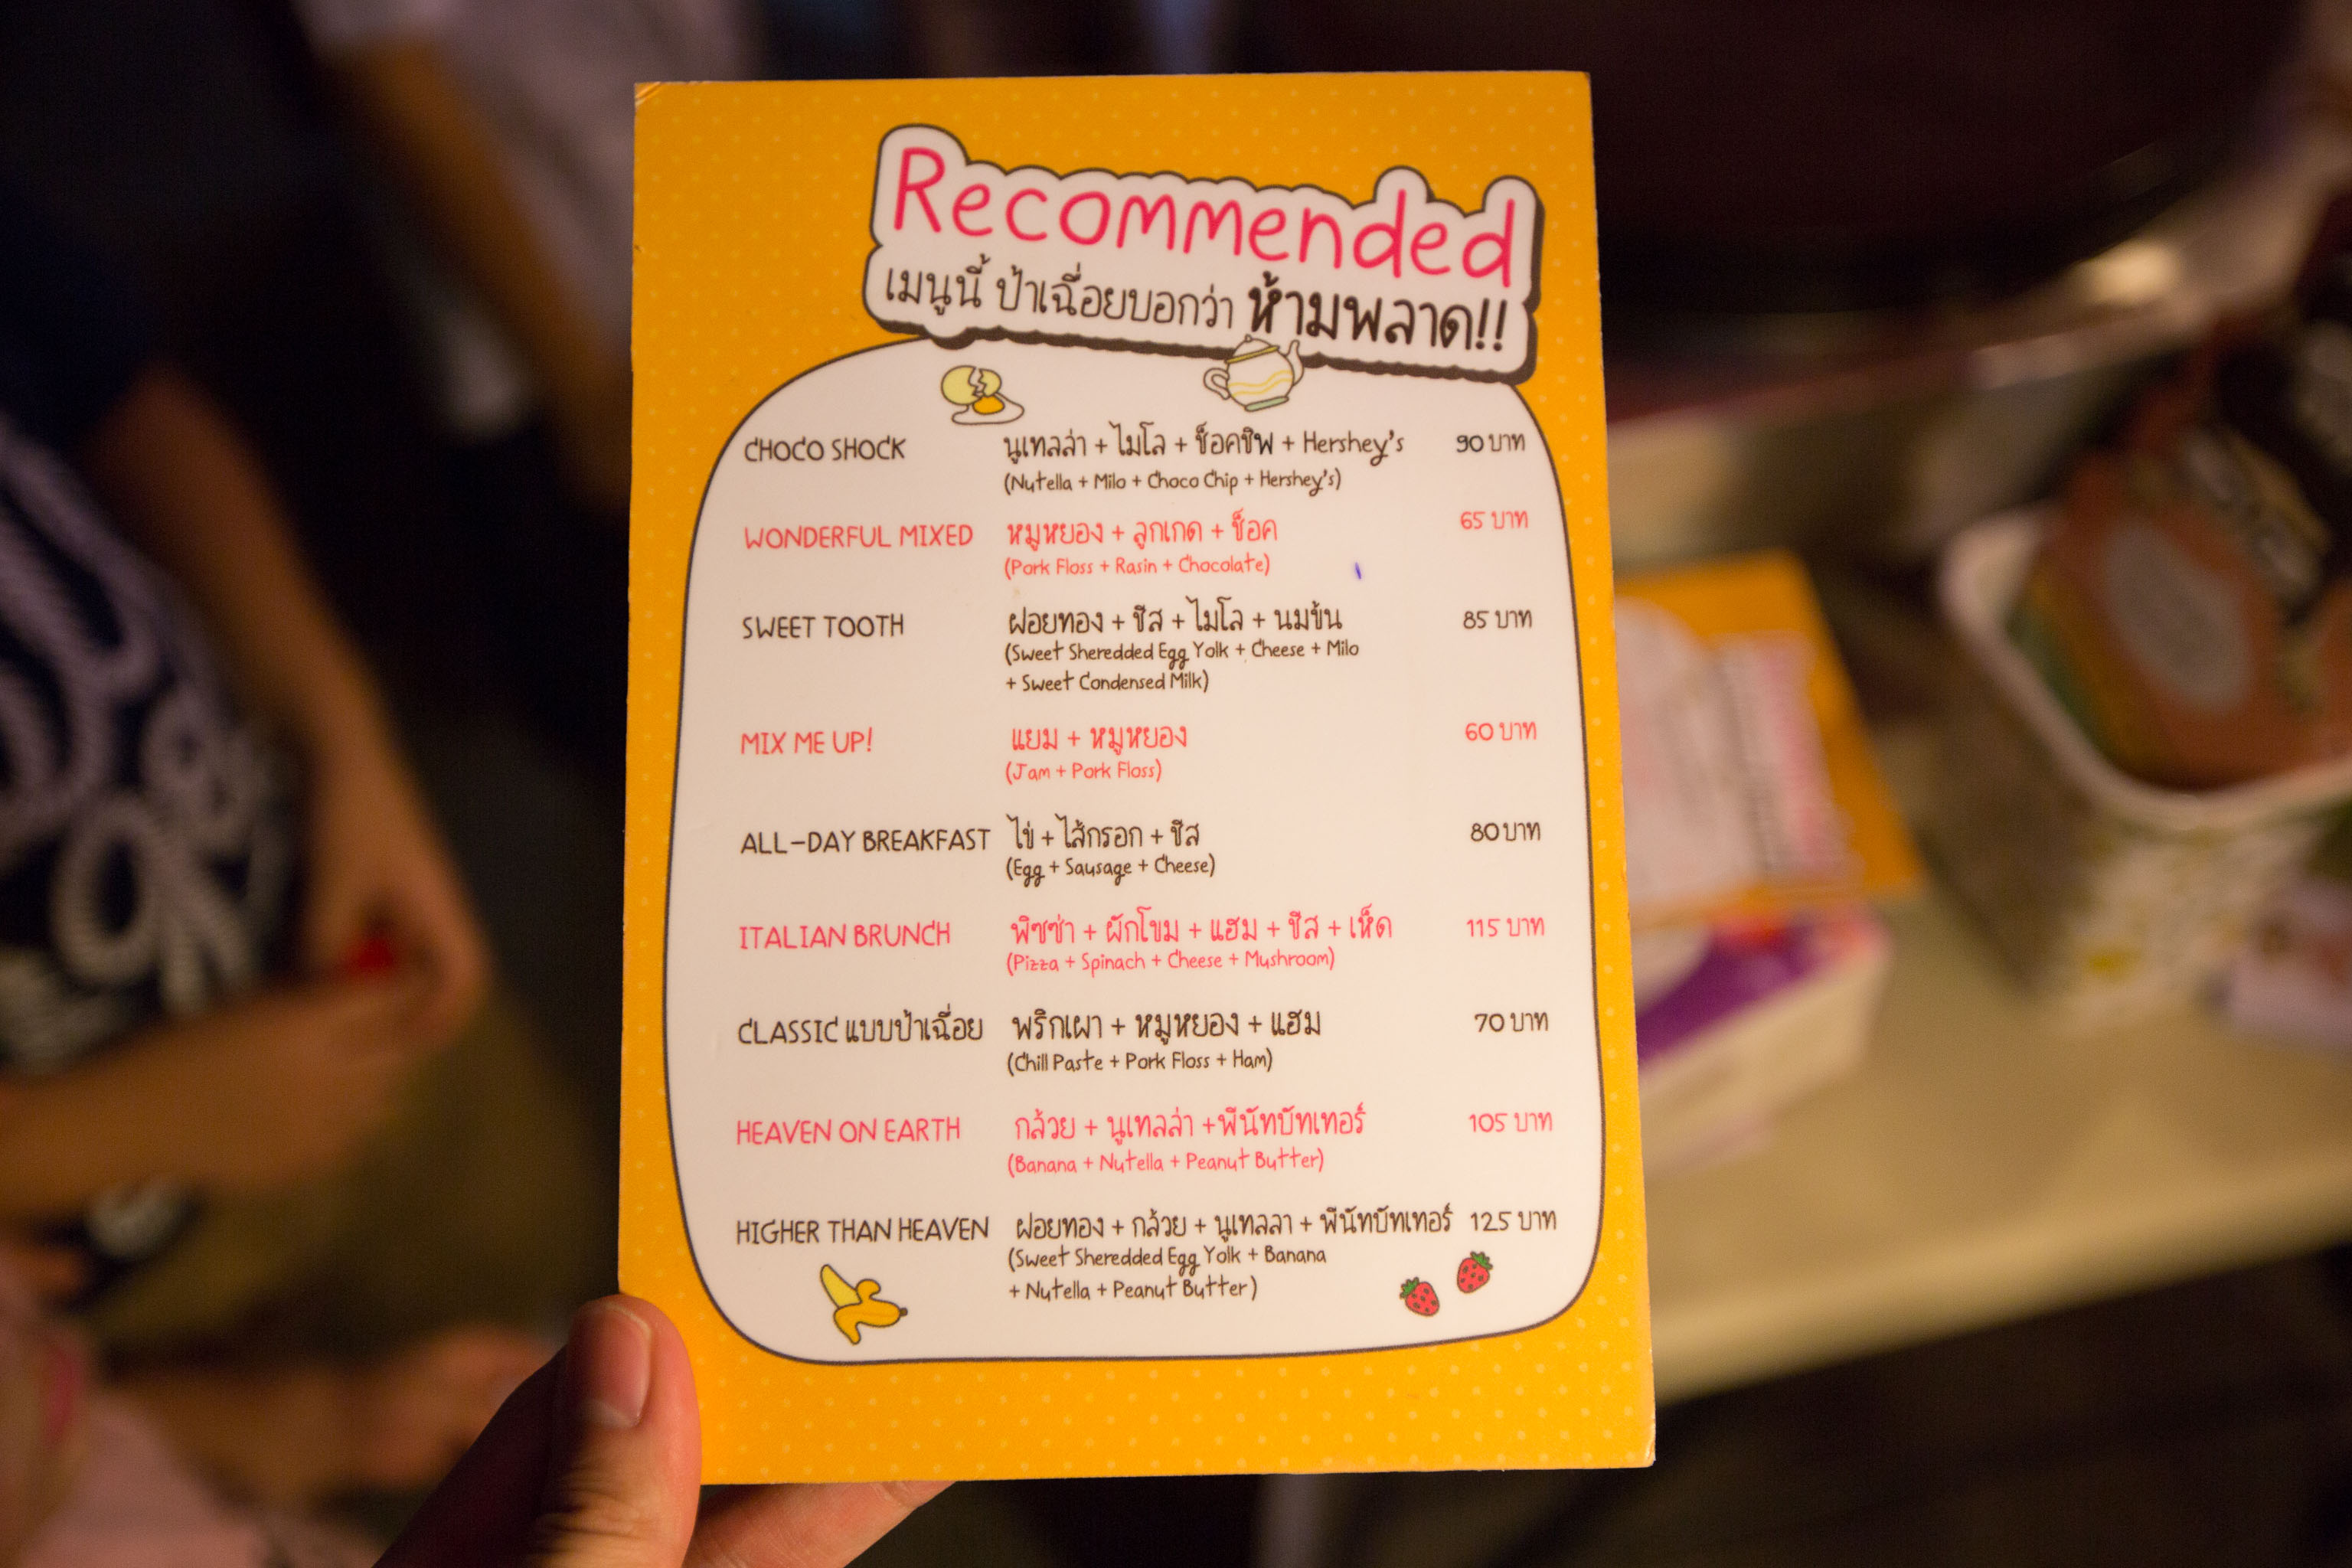 Recommended
เมนูนี้ ป้าเฉื่อยบอกว่า ห้ามพลาด!!
CHOCO SHOCK นูเทลล่า + ไมโล + ช็อคชิพ + Hershey's 90 บาท
(Nutella + Milo + Choco Chip + Hershey's)
WONDERFUL MIXED หมูหยอง + ลูกเกด + ช็อค 65 บาท
(Pork Floss + Rasin + Chocolate)
SWEET TOOTH ฝอยทอง + ชีส + ไมโล + นมข้น 85 บาท
(Sweet Sheredded Egg Yolk + Cheese + Milo
+ Sweet Condensed Milk)
MIX ME UP! แยม + หมูหยอง 60 บาท
(Jam + Pork Floss)
ALL-DAY BREAKFAST ไข่ + ไส้กรอก + ชีส 80 บาท
(Egg + Sausage + Cheese)
ITALIAN BRUNCH พิซซ่า + ผักโขม + แฮม + ชีส + เห็ด 115 บาท
(Pizza + Spinach + Cheese + Mushroom)
CLASSIC แบบป้าเฉื่อย พริกเผา + หมูหยอง + แฮม 70 บาท
(Chill Paste + Pork Floss + Ham)
HEAVEN ON EARTH กล้วย + นูเทลล่า +พีนัทบัทเทอร์ 105 บาท
(Banana + Nutella + Peanut Butter)
HIGHER THAN HEAVEN ฝอยทอง + กล้วย + นูเทลลา + พีนัทบัทเทอร์ 125 บาท
(Sweet Sheredded Egg Yolk + Banana
+ Nutella + Peanut Butter)